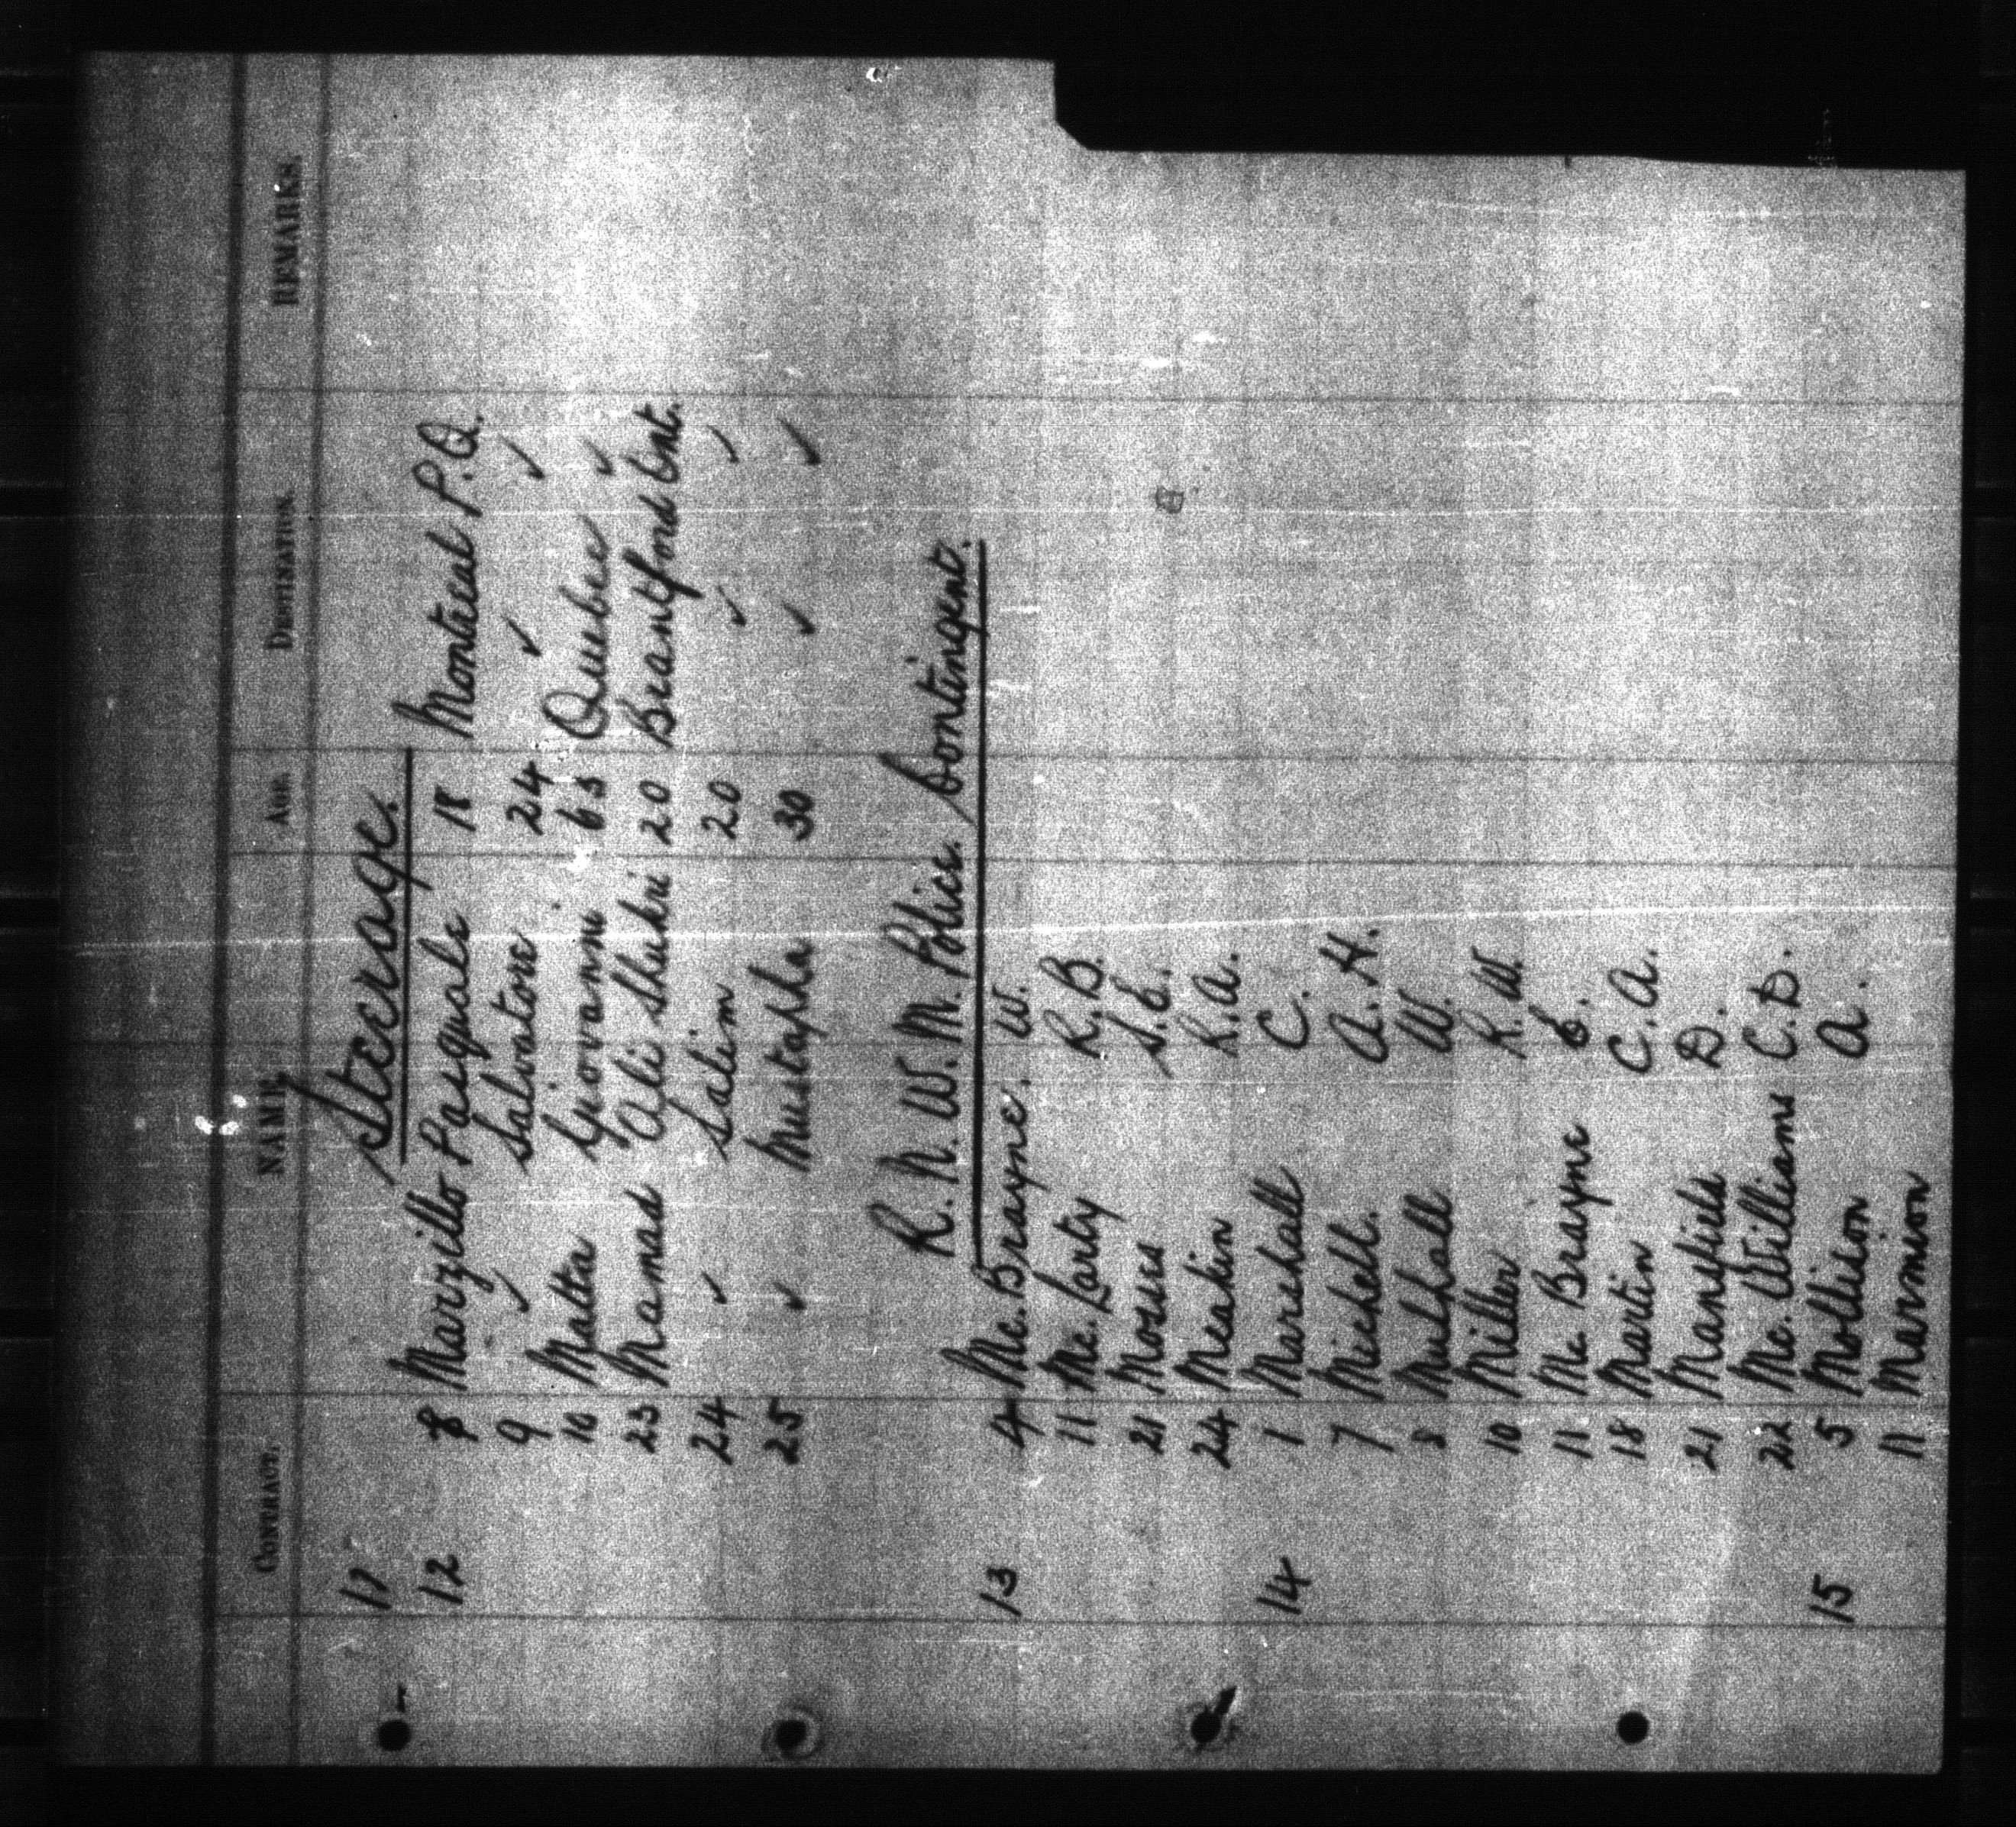 CONTRACT. NAME. AGE. DESTINATION. REMARKS.
11 Steerage.
12 8 Marzillo Pasquale 18 Montreal P.Q.
9 ✓ Salvatore 24 ✓ ✓
10 Malta Giovanni 63 Quebec ✓
23 Mamad Ali Shukri 20 Brantford Ont.
24 ✓ Salim 20 ✓ ✓
25 ✓ Mustapha 30 ✓ ✓
R. N. W. M. Police. Contingent.
13 4 Mc. Brayne. W.
11 Mc. Larty R. B.
21 Moses S. E.
24 Meakin R. A.
14 1 Marshall C.
7 Michell. A. H.
8 Mulhall W.
10 Miller R. W.
11 Mc Brayne E.
18 Martin C. A.
21 Mansfield D.
22 Mc. Williams C. D.
15 5 Mollison A.
11 Marmion